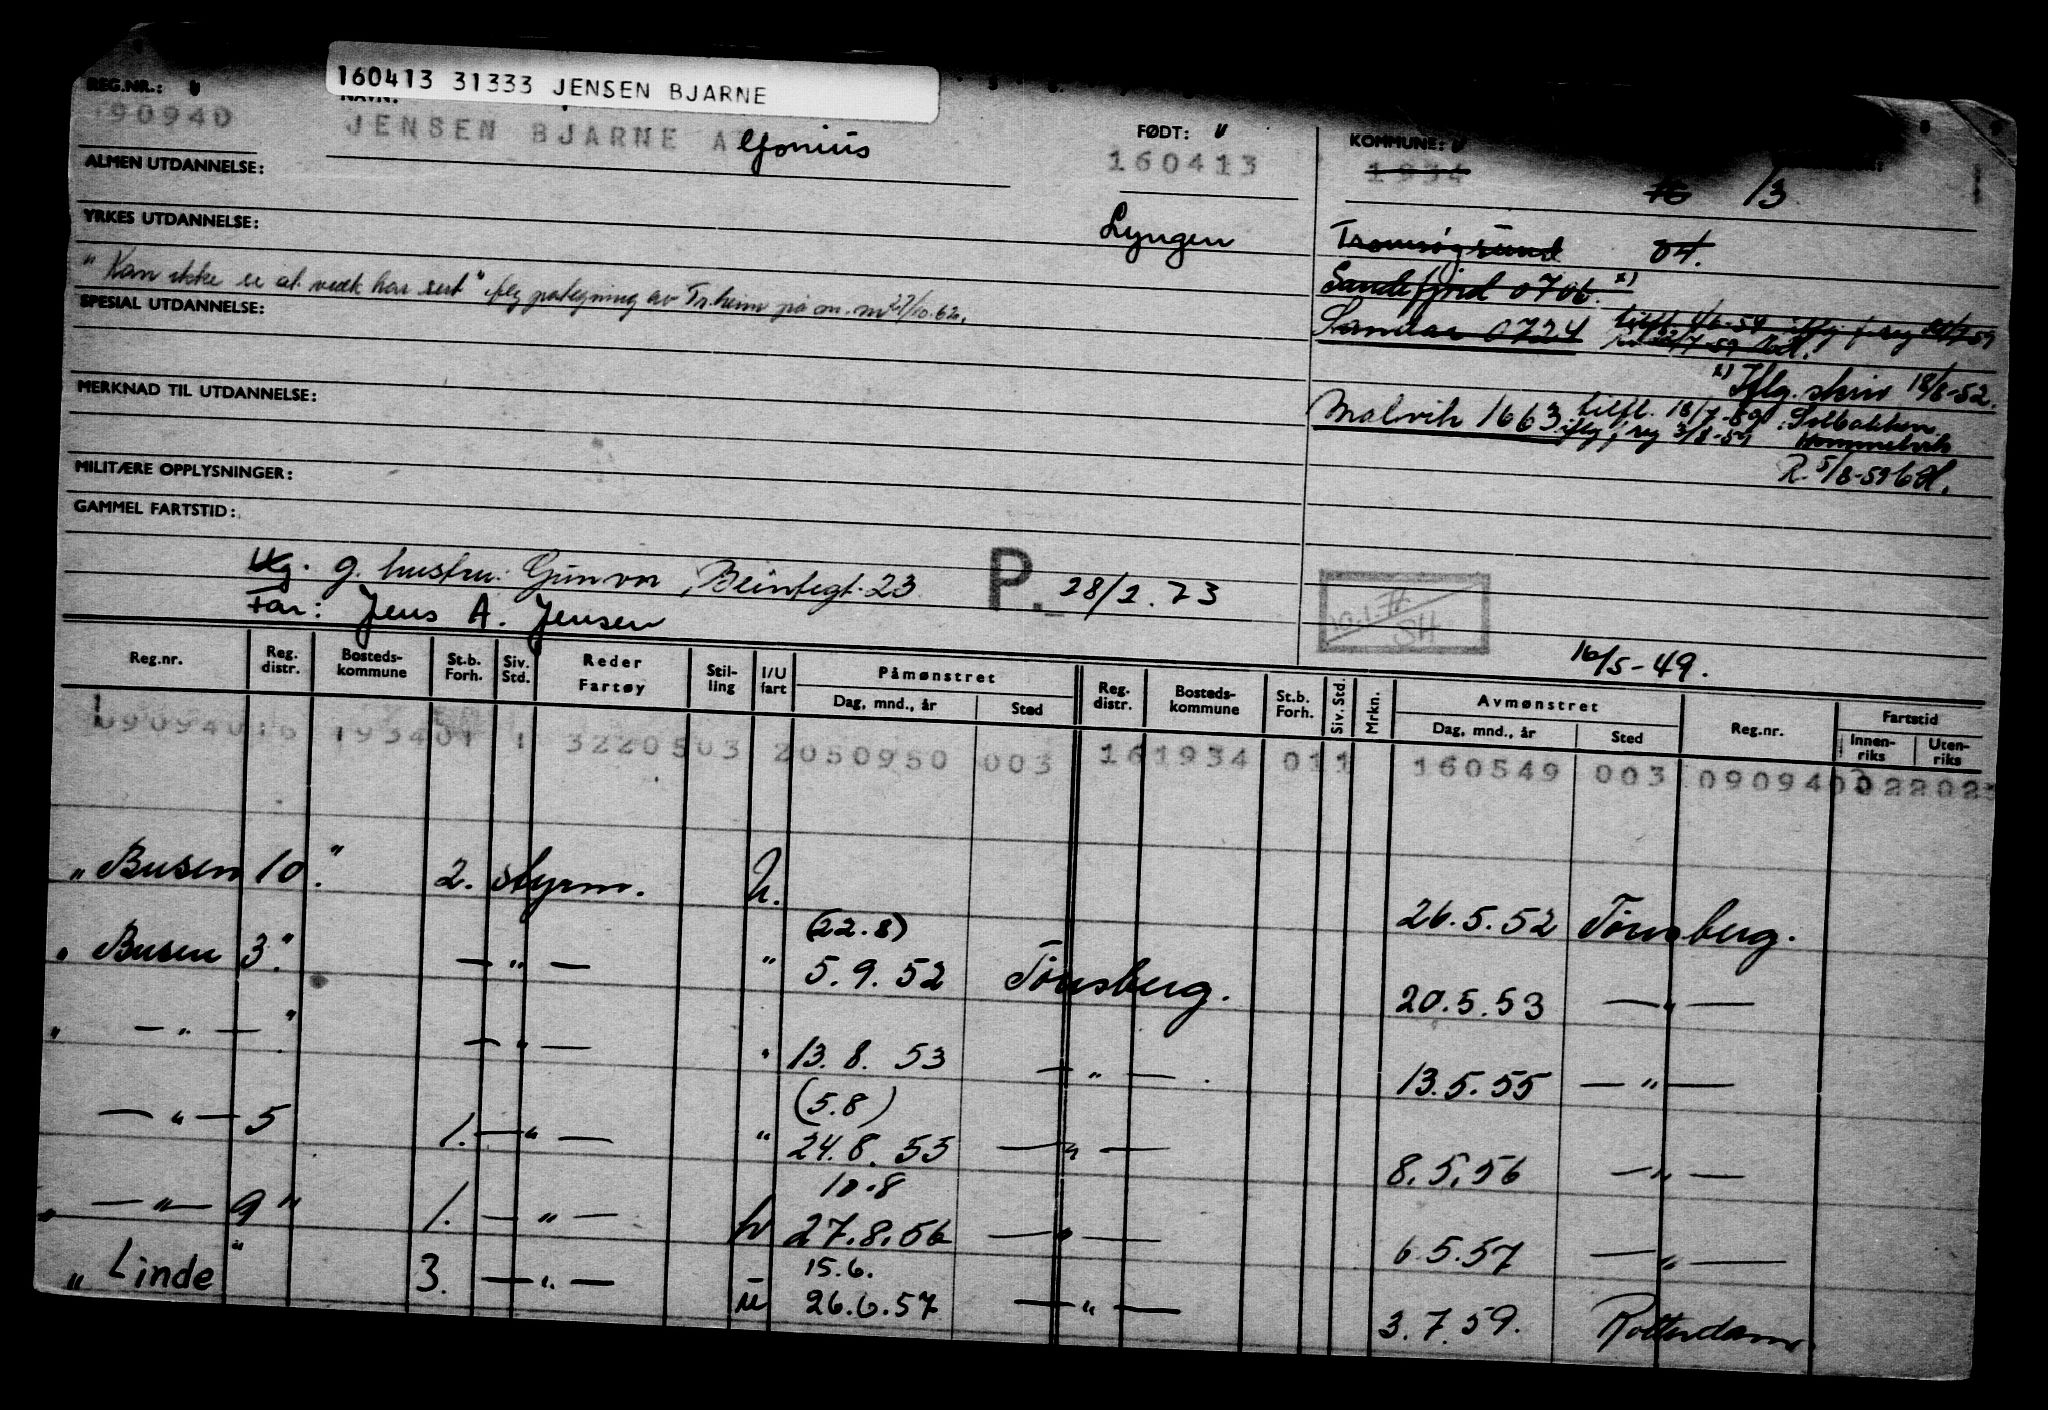 160413 31333 JENSEN BJARNE
REG.NR.:
NAVN:
FØDT:
KOMMUNE:
90940
JENSEN BJARNE A lfonius
160413
1934
16 13
ALMEN UTDANNELSE:
YRKES UTDANNELSE:
Lyngen
Tromsøysund 04.
"Kan ikke se at vedk har sert" iflg påtegning av Tr.heim på m. 27/10.62.
Sandefjord 0706. x)
SPESIAL UTDANNELSE:
Sandar 0724 tilfl. 4/6-59 iflg. f reg
x) Iflg. skriv 18/8-52.
MERKNAD TIL UTDANNELSE:
Malvik 1663 tilfl. 18/7-59 Solbakken
iflg f. reg 3/8-59 Hommelvik
R. 5/8-59 bd.
MILITÆRE OPPLYSNINGER:
GAMMEL FARTSTID:
g. hustru: Gunvor, 23
P. 28/2.73
Far: Jens A. Jensen
SH
16/5-49.
Reg.nr. Reg. distr. Bosteds-kommune St.b. Forh. Siv. Std. Reder Fartøy Stil-ling I/U fart Påmønstret Dag, mnd., år Sted Reg. distr. Bosteds-kommune St.b. Forh. Siv. Std. Mrkn. Avmønstret Dag, mnd., år Sted Reg.nr. Fartstid Innen-riks Uten-riks
090940 16 1934 01 1 3220503 2 050950 003 16 1934 01 1 160549 003 090940 022023
"Busen 10." 2. styrm. U. 26.5.52 Tønsberg.
(22.8)
"Busen 3." — " — " 5.9.52 Tønsberg. 20.5.53 — " —
" — " — ". — " — " 13.8.53 — " — . 13.5.55 — " —
(5.8)
— " — 5 1. — " — " 24.8.55 — " — 8.5.56 — " —
10.8
" — " — 9" 1. — " — U 27.8.56 — " — 6.5.57 — " —
15.6.
"Linde" 3. — " — U 26.6.57 — " — 3.7.59. Rotterdam.